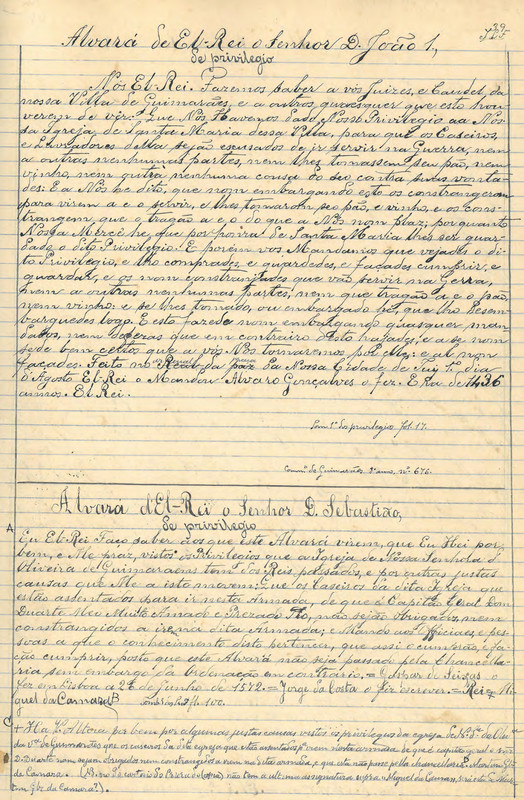 39
Alvará de El-Rei o Senhor D. João 1.,
de privilegio
Nós El-Rei. Fazemos saber a vós Juizes, e Caudel, da
nossa Villa de Guimarães, e a outros, quaesquer que esto hou
verem de ver: Que Nós Havemos dado Nosso Privilegio aa Nos
sa Igreja, de Santa Maria dessa Villa, para que os Caseiros,
e Lavradores della sejão escusados de ir servir na Guerra, nem
a outras nenhumas partes, nem lhes tomassem seu pão, nem
vinho, nem outra nenhuma cousa do seu contra suas vonta-
des: E a Nós he dito, que nom embargando esto os constrangeram
para virem a e o servir, e lhes tomarom seo pão, e vinho, e os cons-
trangem que o tragão a e o do que a Nós nom praz; por quanto
Nossa Mercê he, que por hoira de Santa Maria lhes ser guar-
dado o dito Privilegio: E porem vos Mandamos que vejades o di-
to Privilegio, e lho comprades, e guardedes, e façades cumprir, e
guardar, e os nom constranjades que vão servir na Gerra,
nem a outras nenhumas partes, nem que tragão a e o pão,
nem vinho: e se lhes tomado, ou embargado he, que lho desem-
barguedes logo. E esto fazede nom embargando quasquer man
dados, nem defezas que em contrairo desto hajades, e a e nom
sede bem certos que a vós Nos tornaremos por ello: e al nom
façades. Feito no Real da par da Nossa Cidade de Tui 1.º dia
d'Agosto El-Rei o Mandou Alvaro Gonçalves o fez. Era de 1436
annos. El-Rei.
Livr.º dos privilegios fol. 17.
de Guimarães, 8.º anno, n.º 676.
Alvará d'El-Rei o Senhor D. Sebastião,
de privilegio
A
Eu El-Rei Faço saber aos que este Alvará virem, que Eu Hei por
bem, e Me praz, vistos os Privilegios que a Igreja de Nossa Senhora d'
Oliveira de Guimaraens tem dos Reis, passados, e por outras justas
causas que Me a isto movem: Que os Caseiros da dita Igreja que
estão assentados para ir nesta Armada, de que é Capitão Geral Dom
Duarte Meu Muito Amado e Prezado Tio, não sejão obrigados, nem
constrangidos a irem á dita Armada; e Mando aos Officiaes, e pes-
soas a que o conhecimento disto pertencer, que assi o cumprão, e fa-
ção cumprir, posto que este Alvará não seja passado pela Chancella-
ria sem embargo da Ordenação em contrario. = Gaspar de Seixas o
fez em Lisboa a 28 de Junho de 1572. = Jorge da Costa o fiz escrever. = Rei ✝ Mi-
guel da Camara.B
fl. 100.
C
+ Ha S. Altesa por bem por algumas justas causas vistos os privilegios da egreja de N.ª S.ª da Oliv.ra
da v.ª de Guimarães que os caseiros da dita egreja que estão assentados p.ª irem nesta armada de que é capitão geral o snr.
D. Duarte nom sejam obrigados nem constrangidos a irem na dita armada, e que esta não passe pela chancellaria. B Martim Glz
da Camara. não com a ultima designatura supra = Miguel da Camara, Mar
tim Glz da Camara).